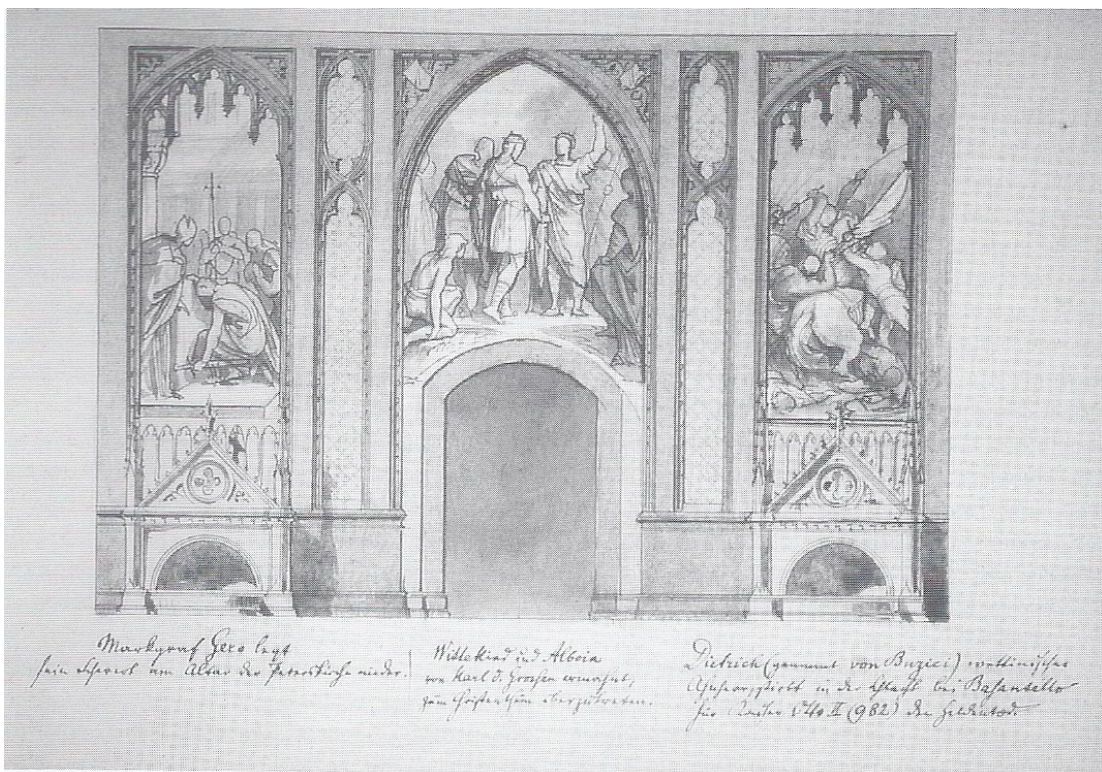 Markgraf Gero legt
sein Schwert am Altar der Peterskirche nieder.
Wittekind und Alboin
von Karl d. Großen ermahnt,
zum Christenthum überzutreten.
Dietrich (genannt von Buzici) wettinischer
Ahnherr, stirbt in der Schlacht bei Basantello
für Kaiser Otto II (982) den Heldentod.